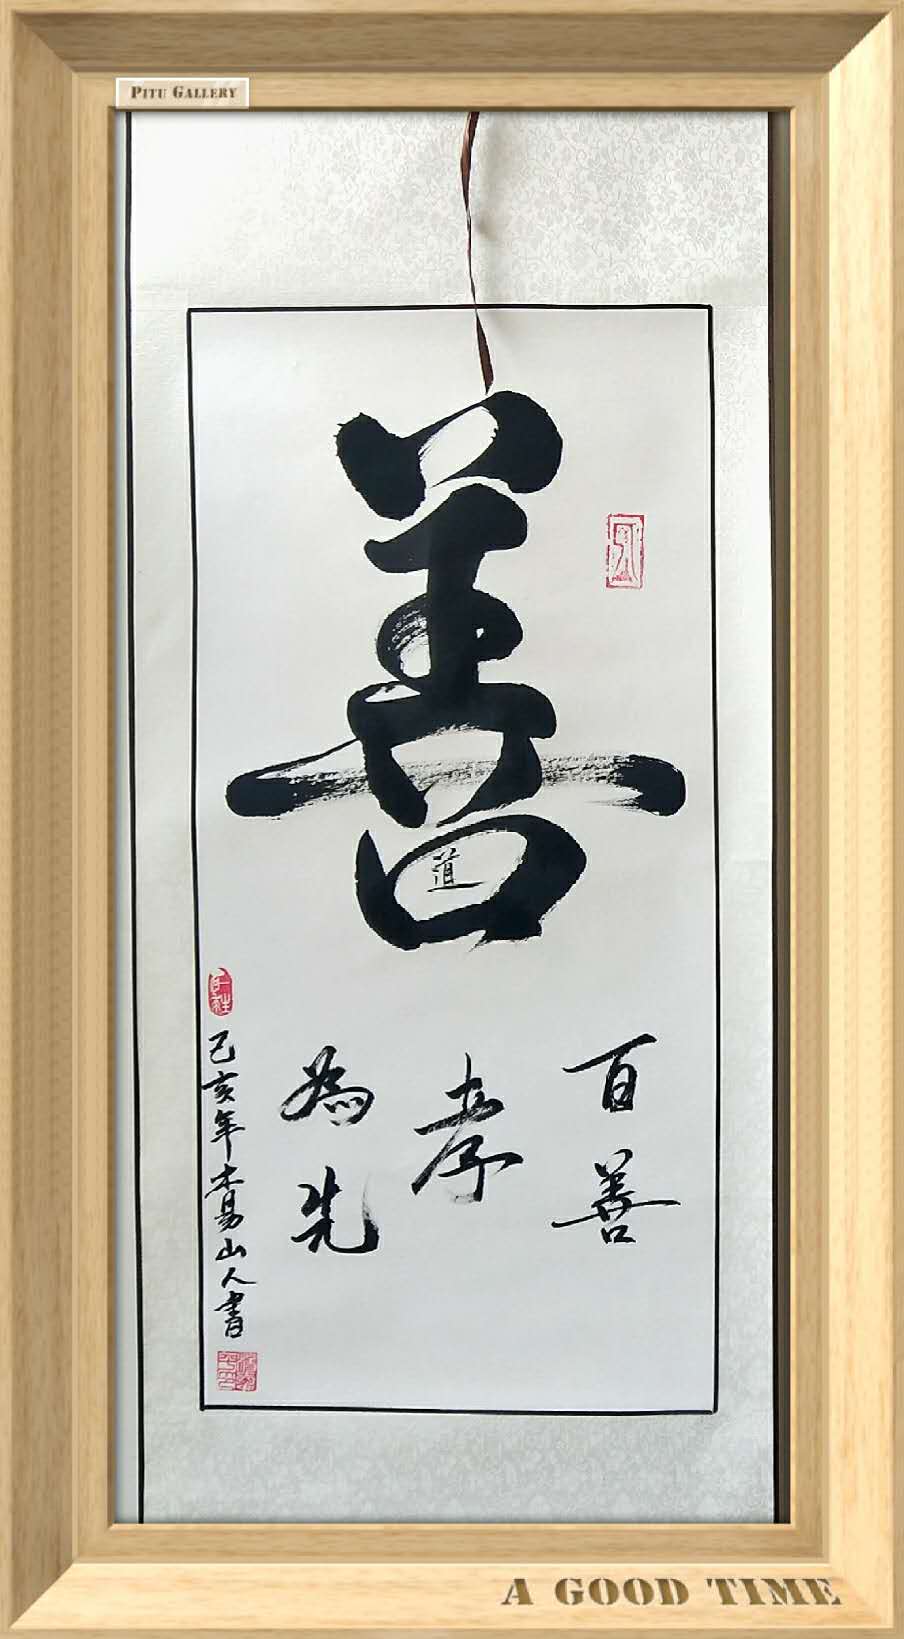 PITU GALLERY
善
道
百善
孝
為先
己亥年木易山人書
A GOOD TIME